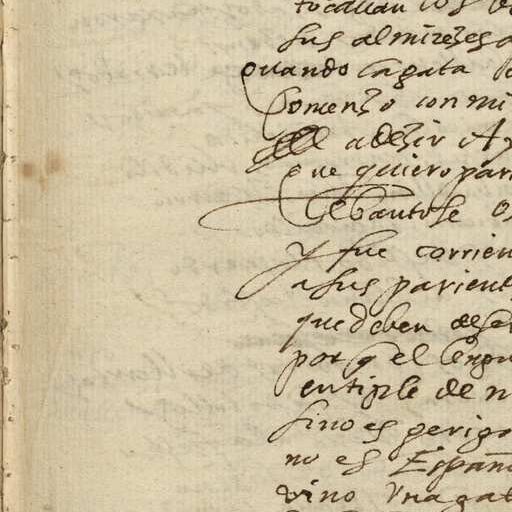 tocauan los
sus almireses
quando la gata
Comenzo con mi
a dezir Ay
que quiero pari
Lebantose
y fue corrien
a sus parient
que deben de ser
por q el lengu
entiple de n
sino es gerigo
no es Españ
vino Vna gat